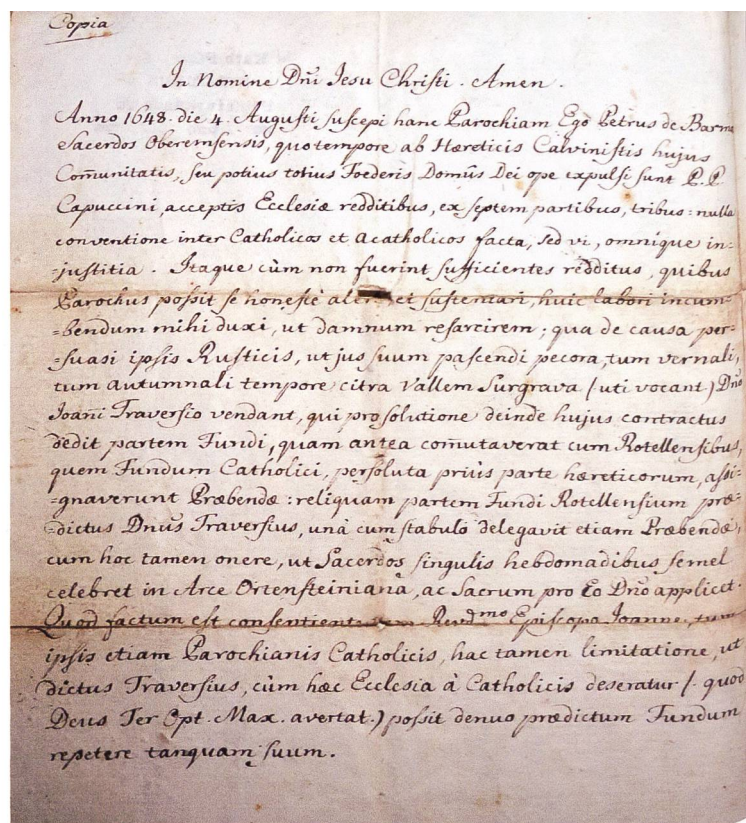 Copia
In Nomine Dni Jesu Christi. Amen.
Anno 1648. die 4. Augusti suscepi hanc Parochiam Ego Petrus de Barma
Sacerdos Oberemsensis, quo tempore ab Hæreticis Calvinistis hujus
Com̄unitatis, seu potius totius Foederis Domûs Dei ope expulsi sunt P.P.
Capuccini, acceptis Ecclesiæ redditibus, ex septem partibus, tribus: nulla
conventione inter Catholicos et Acatholicos facta, sed vi, omnique in=
=justitia. Itaque cùm non fuerint sufficientes redditus, quibus
Parochus possit se honestè et sustentari, huic labori incum=
=bendum mihi duxi, ut damnum resarcirem; qua de causa per=
=suasi ipsis Rusticis, ut jus suum pascendi pecora, tum vernali,
tum autumnali tempore citra Vallem Surgrava (uti vocant) Dno
Joani Traversio vendant, qui pro solutione deinde hujus contractus
dedit partem Fundi, quam antea com̄utaverat cum Rotellensibus,
quem Fundum Catholici, persoluta priùs parte hæreticorum, assi=
=gnaverunt Præbendæ: reliquam partem Fundi Rotellensium præ=
=dictus Dnus Traversius, unà cum stabulo delegavit etiam Præbendæ,
cum hoc tamen onere, ut Sacerdos singulis hebdomadibus semel
celebret in Arce Ortensteinianâ, ac Sacrum pro Eo Dno applicet.
Quod factum est Revd.mo Episcopo Joanne, tum
ipsis etiam Parochianis Catholicis, hac tamen limitatione, ut
dictus Traversius, cùm hæc Ecclesia à Catholicis deseratur (. quod
Deus Ter Opt. Max. avertat.) possit denuo prædictum Fundum
repetere tanquam suum.